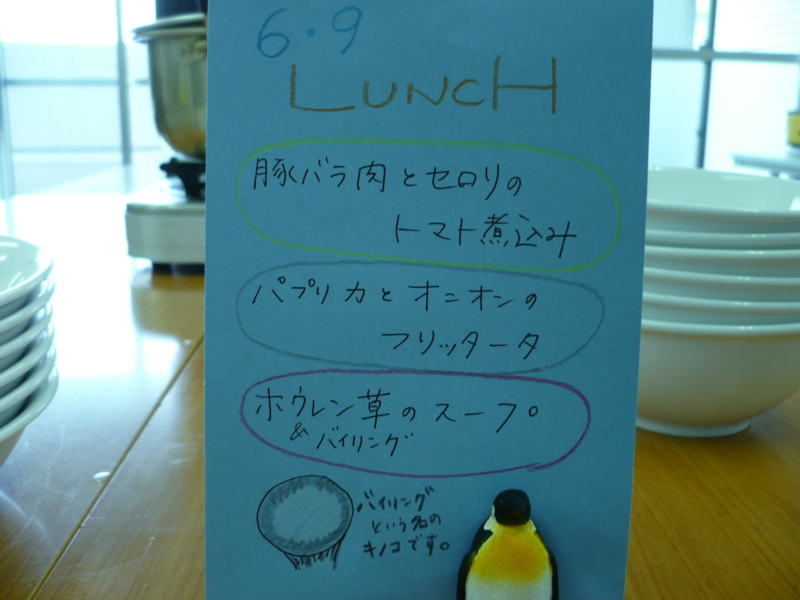 6・9
LUNCH
豚バラ肉とセロリの
トマト煮込み
パプリカとオニオンの
フリッタータ
ホウレン草のスープ
&バイリング
バイリング
という名の
キノコです。